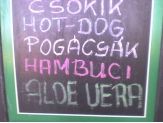 CSOKIK
HOT-DOG
POGÁCSÁK
HAMBUCI
ALOE VERA